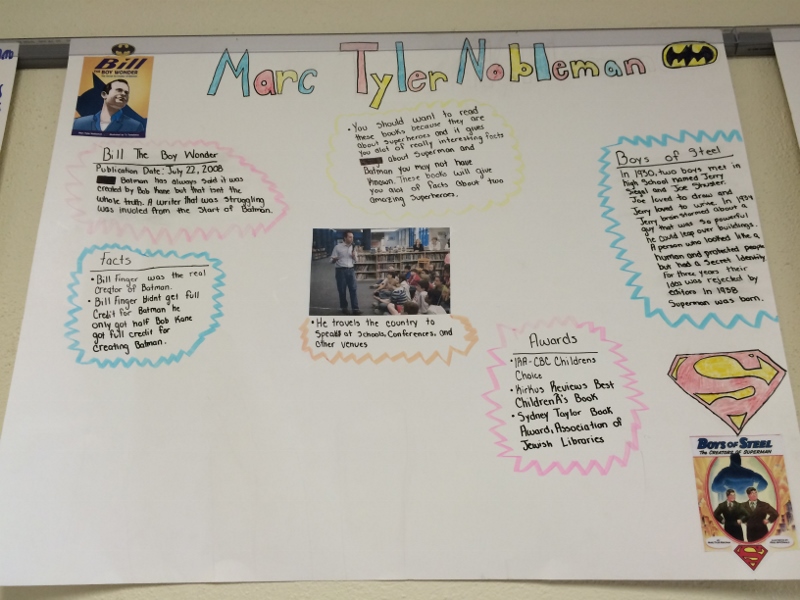 Marc Tyler Nobleman
Bill
THE BOY WONDER
• You should want to read
these books because they are
about superheroes and it gives
you alot of really interesting facts
about Superman and
Batman you may not have
known. These books will give
you alot of facts about two
amazing Superheros.
Bill The Boy Wonder
Publication Date: July 22, 2008
Batman has always said it was
created by Bob Kane but that isnt the
whole truth. A writer that was struggling
was involed from the Start of Batman.
Facts
• Bill Finger was the real
Creator of Batman.
• Bill Finger didnt get full
Credit for Batman he
only got half Bob Kane
got full credit for
creating Batman.
• He travels the country to
Speak at Schools, Conferences, and
other venues
Boys of Steel
In 1930, two boys met in
high School named Jerry
Siegel and Joe Shuster.
Joe loved to draw and
Jerry loved to write. In 1934
Jerry brain stormed about a
guy that was so powerful
he could leap over buildings.
A person who looked like a
human and protected people
but had a Secret Identity
For three years their
idea was rejected by
editors In 1938
Superman was born.
Awards
• IRA-CBC Childrens
Choice
• Kirkus Reviews Best
Children's Book
• Sydney Taylor Book
Award, Association of
Jewish Libraries
BOYS OF STEEL
THE CREATORS OF SUPERMAN